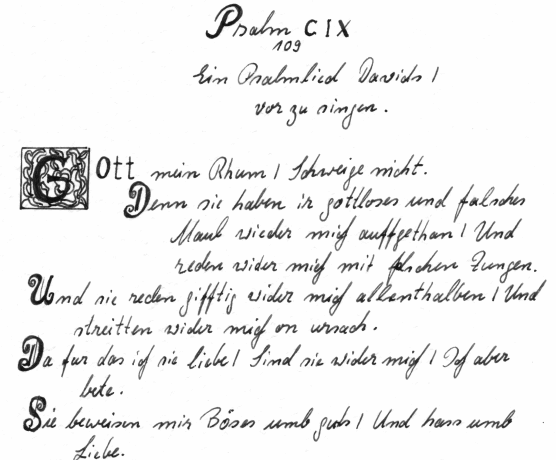 Psalm CIX
109
Ein Psalmlied Davids /
vor zu singen.
GOtt mein Rhum / Schweige nicht.
Denn sie haben ir gottloses und falsches
Maul wieder mich auffgethan / Und
reden wider mich mit falschen Zungen.
Und sie reden gifftig wider mich allenthalben / Und
streitten wider mich on ursach.
Da fur das ich sie liebe / Sind sie wider mich / Ich aber
bete.
Sie beweisen mir Böses umb guts / Und hass umb
Liebe.